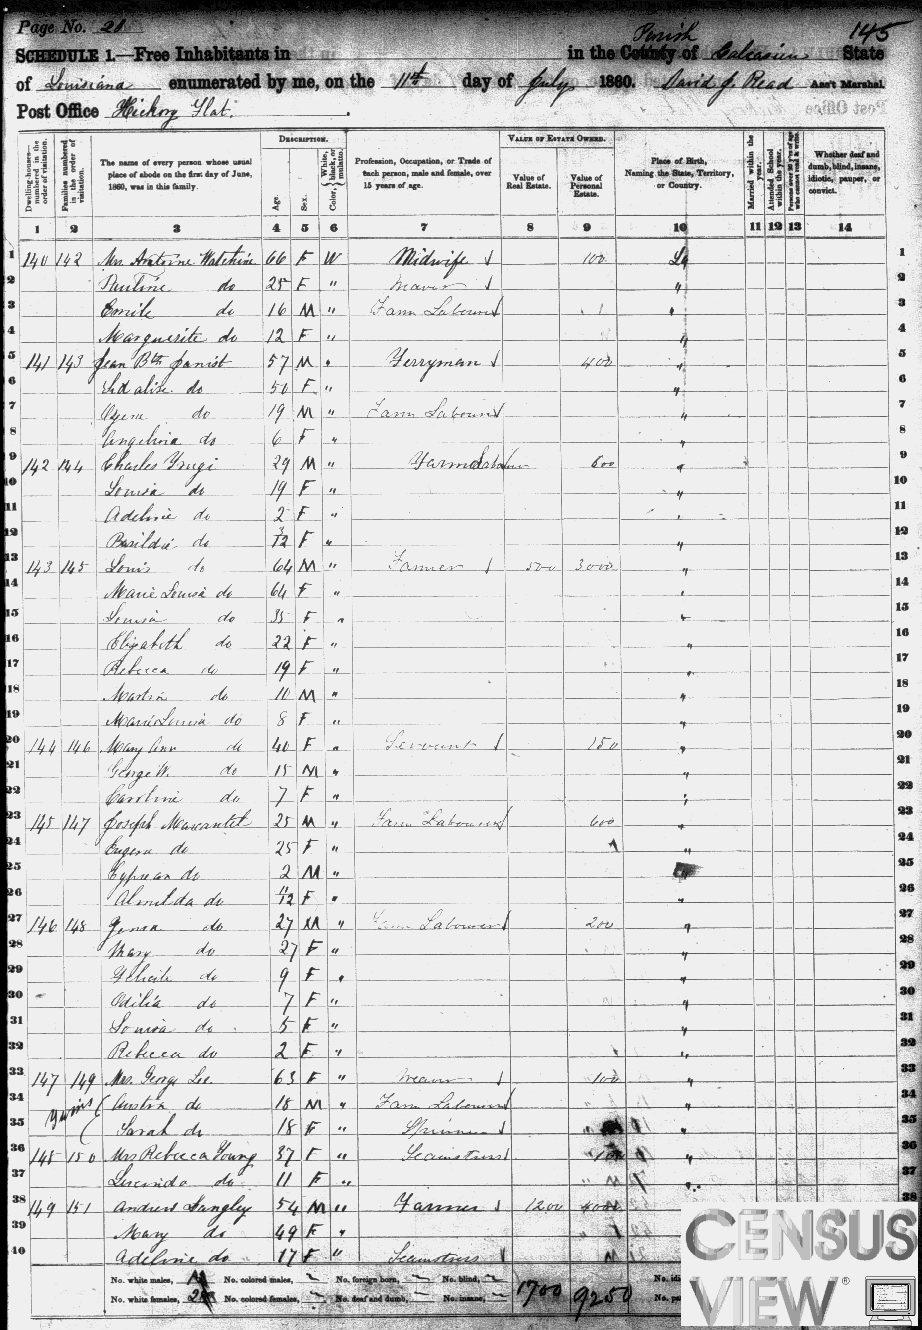 Page No. 20
145
SCHEDULE 1.—Free Inhabitants in in the County of Parish Calcasieu State
of Louisiana enumerated by me, on the 11th day of July 1860. David J. Read Ass't Marshal.
Post Office Hickory Flat.
DESCRIPTION. VALUE OF ESTATE OWNED.
Dwelling-houses— numbered in the order of visitation.
Families numbered in the order of visitation.
The name of every person whose usual place of abode on the first day of June, 1860, was in this family.
Age.
Sex.
Color, White, black, or mulatto.
Profession, Occupation, or Trade of each person, male and female, over 15 years of age.
Value of Real Estate.
Value of Personal Estate.
Place of Birth, Naming the State, Territory, or Country.
Married within the year.
Attended School within the year.
Persons over 20 y'rs of age who cannot read & write.
Whether deaf and dumb, blind, insane, idiotic, pauper, or convict.
1 2 3 4 5 6 7 8 9 10 11 12 13 14
1 140 142 Mrs. Antoine 66 F W Midwife 100 La 1
2 Pauline do 25 F " Weaver " 2
3 Emile do 16 M " Farm Labourer " 3
4 Marguerite do 12 F " " 4
5 141 143 Jean Bth 57 M " Ferryman 400 " 5
6 do 50 F " " 6
7 do 19 M " Farm Labourer " 7
8 Angelina do 6 F " " 8
9 142 144 Charles 29 M " Farm Labourer 600 " 9
10 Louisa do 19 F " " 10
11 Adeline do 2 F " " 11
12 do 3/12 F " " 12
13 143 145 Louis do 64 M " Farmer 500 3000 " 13
14 Marie Louisa do 64 F " " 14
15 Louisa do 35 F " " 15
16 Elizabeth do 22 F " " 16
17 Rebecca do 19 F " " 17
18 Martin do 10 M " " 18
19 Marie Louisa do 8 F " " 19
20 144 146 Mary Ann do 40 F " Servant 150 " 20
21 George W. do 15 M " " 21
22 Caroline do 7 F " " 22
23 145 147 Joseph Marcantel 25 M " Farm Labourer 600 " 23
24 do 25 F " " 24
25 Cyprean do 2 M " " 25
26 do 11/12 F " " 26
27 146 148 do 27 M " Farm Labourer 200 " 27
28 Mary do 27 F " " 28
29 do 9 F " " 29
30 Odilia do 7 F " " 30
31 Louisa do 5 F " " 31
32 Rebecca do 2 F " " 32
33 147 149 Mrs. George Lee. 63 F " Weaver 100 " 33
34 Twins Austin do 18 M " Farm Labourer " 34
35 Sarah do 18 F " Spinner " 35
36 148 150 Mrs Rebecca Young 37 F " Seamstress 100 " 36
37 Lucinda do 11 F " " 37
38 149 151 Andrew Langley 54 M " Farmer 1200 4000 " 38
39 Mary do 49 F "
40 Adeline do 17 F " Seamstress
No. white males, No. colored males, No. foreign born, No. blind,
No. white females, No. colored females, No. deaf and dumb, No. insane, 1700 9250
CENSUS
VIEW®